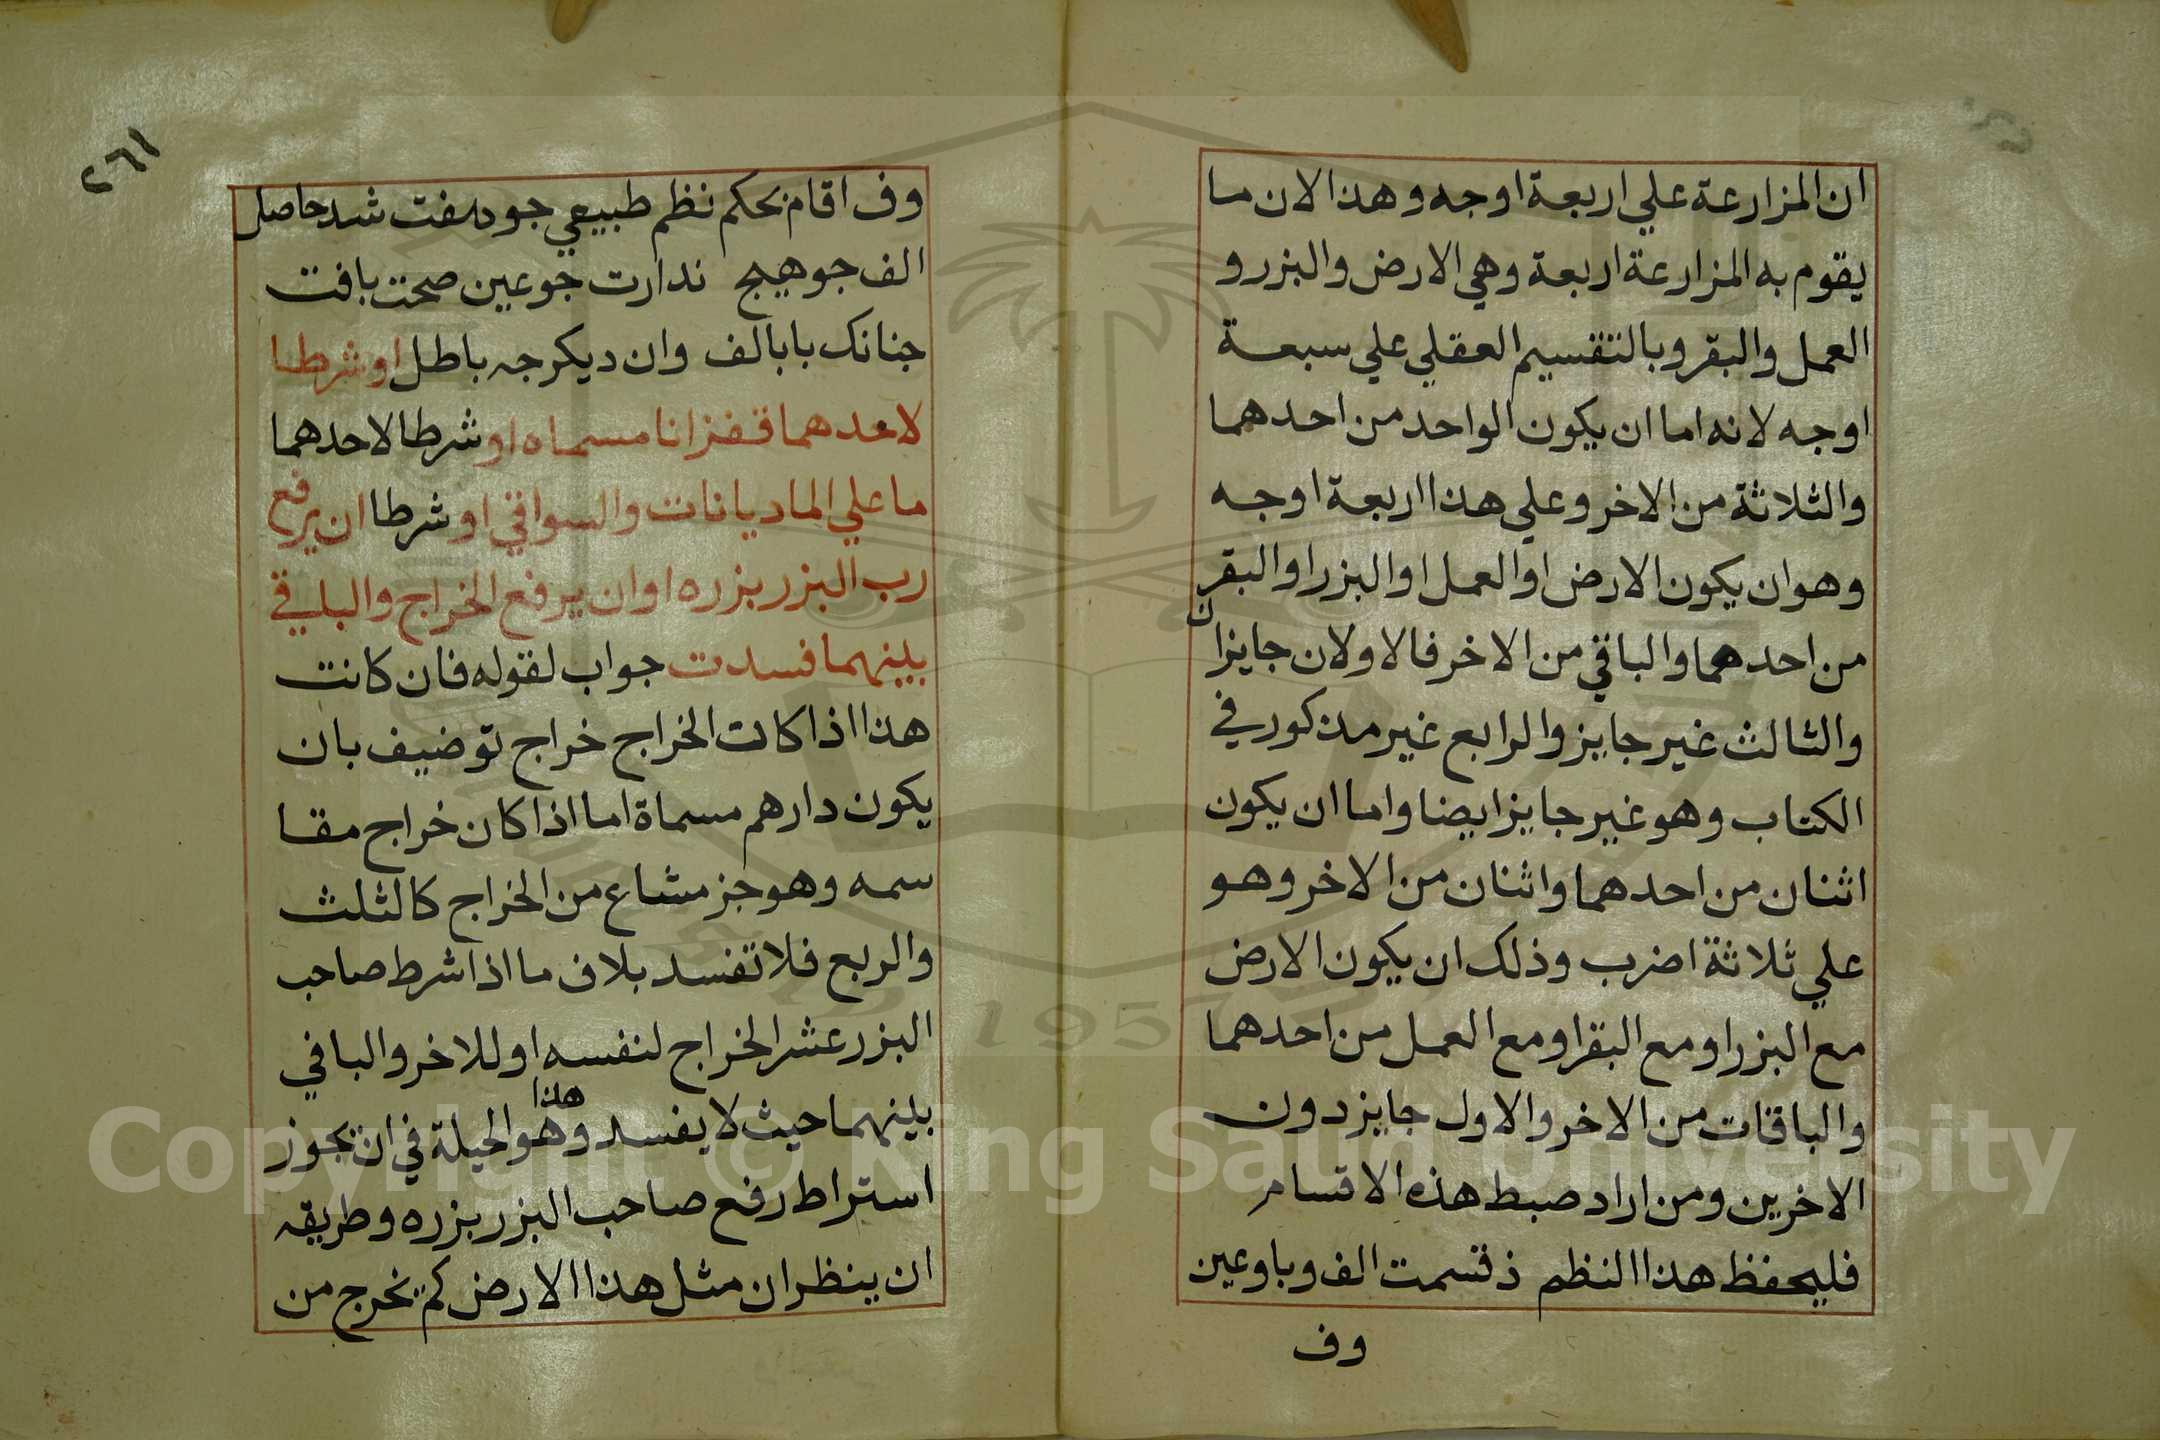 ان المزارعة علي اربعة اوجه وهذا لان ما
يقوم به المزارعة اربعة وهي الارض والبزر و
العمل والبقر وبالتقسيم العقلي علي سبعة
اوجه لانه اما ان يكون الواحد من احدهما
والثلاثة من الاخر وعلي هذا اربعة اوجه
وهو ان يكون الارض او العمل او البزر او البقر
من احدهما والباقي من الاخر فالاولان جايزان
والثالث غير جايز والرابع غير مذكور في
الكتاب وهو غير جايز ايضا واما ان يكون
اثنان من احدهما واثنان من الاخر وهو
علي ثلاثة اضرب وذلك ان يكون الارض
مع البزر او مع البقر او مع العمل من احدهما
والباقات من الاخر والاول جايز دون
الاخرين ومن اراد ضبط هذه الاقسام
فليحفظ هذا النظم ذ قسمت الف وبا وعين
وف
٢٦١
وف اقام بحكم نظم طبيعي جو هفت شد حاصل
الف جو هيج ندارت جو عين صحت بافت
جنانك با بالف وان ديكر جه باطل او شرطا
لاحدهما قفزانا مسماه او شرطا لاحدهما
ما علي الماديانات والسواقي او شرطا ان يرفع
رب البزر بزره او ان يرفع الخراج والباقي
بينهما فسدت جواب لقوله فان كانت
هذا اذا كات الخراج خراج توضيف بان
يكون دارهم مسماة اما اذا كان خراج مقا
سمه وهو جز مشاع من الخراج كالثلث
والربع فلا تفسد بلاف ما اذا شرط صاحب
البزر عشر الخراج لنفسه او للاخر والباقي
بينهما حيث لا يفسد وهو هذا الحيلة في ان تجوز
استراط رفع صاحب البزر بزره وطريقه
ان ينظر ان مثل هذا الارض كم يخرج من
Copyright © King Saud University
1957